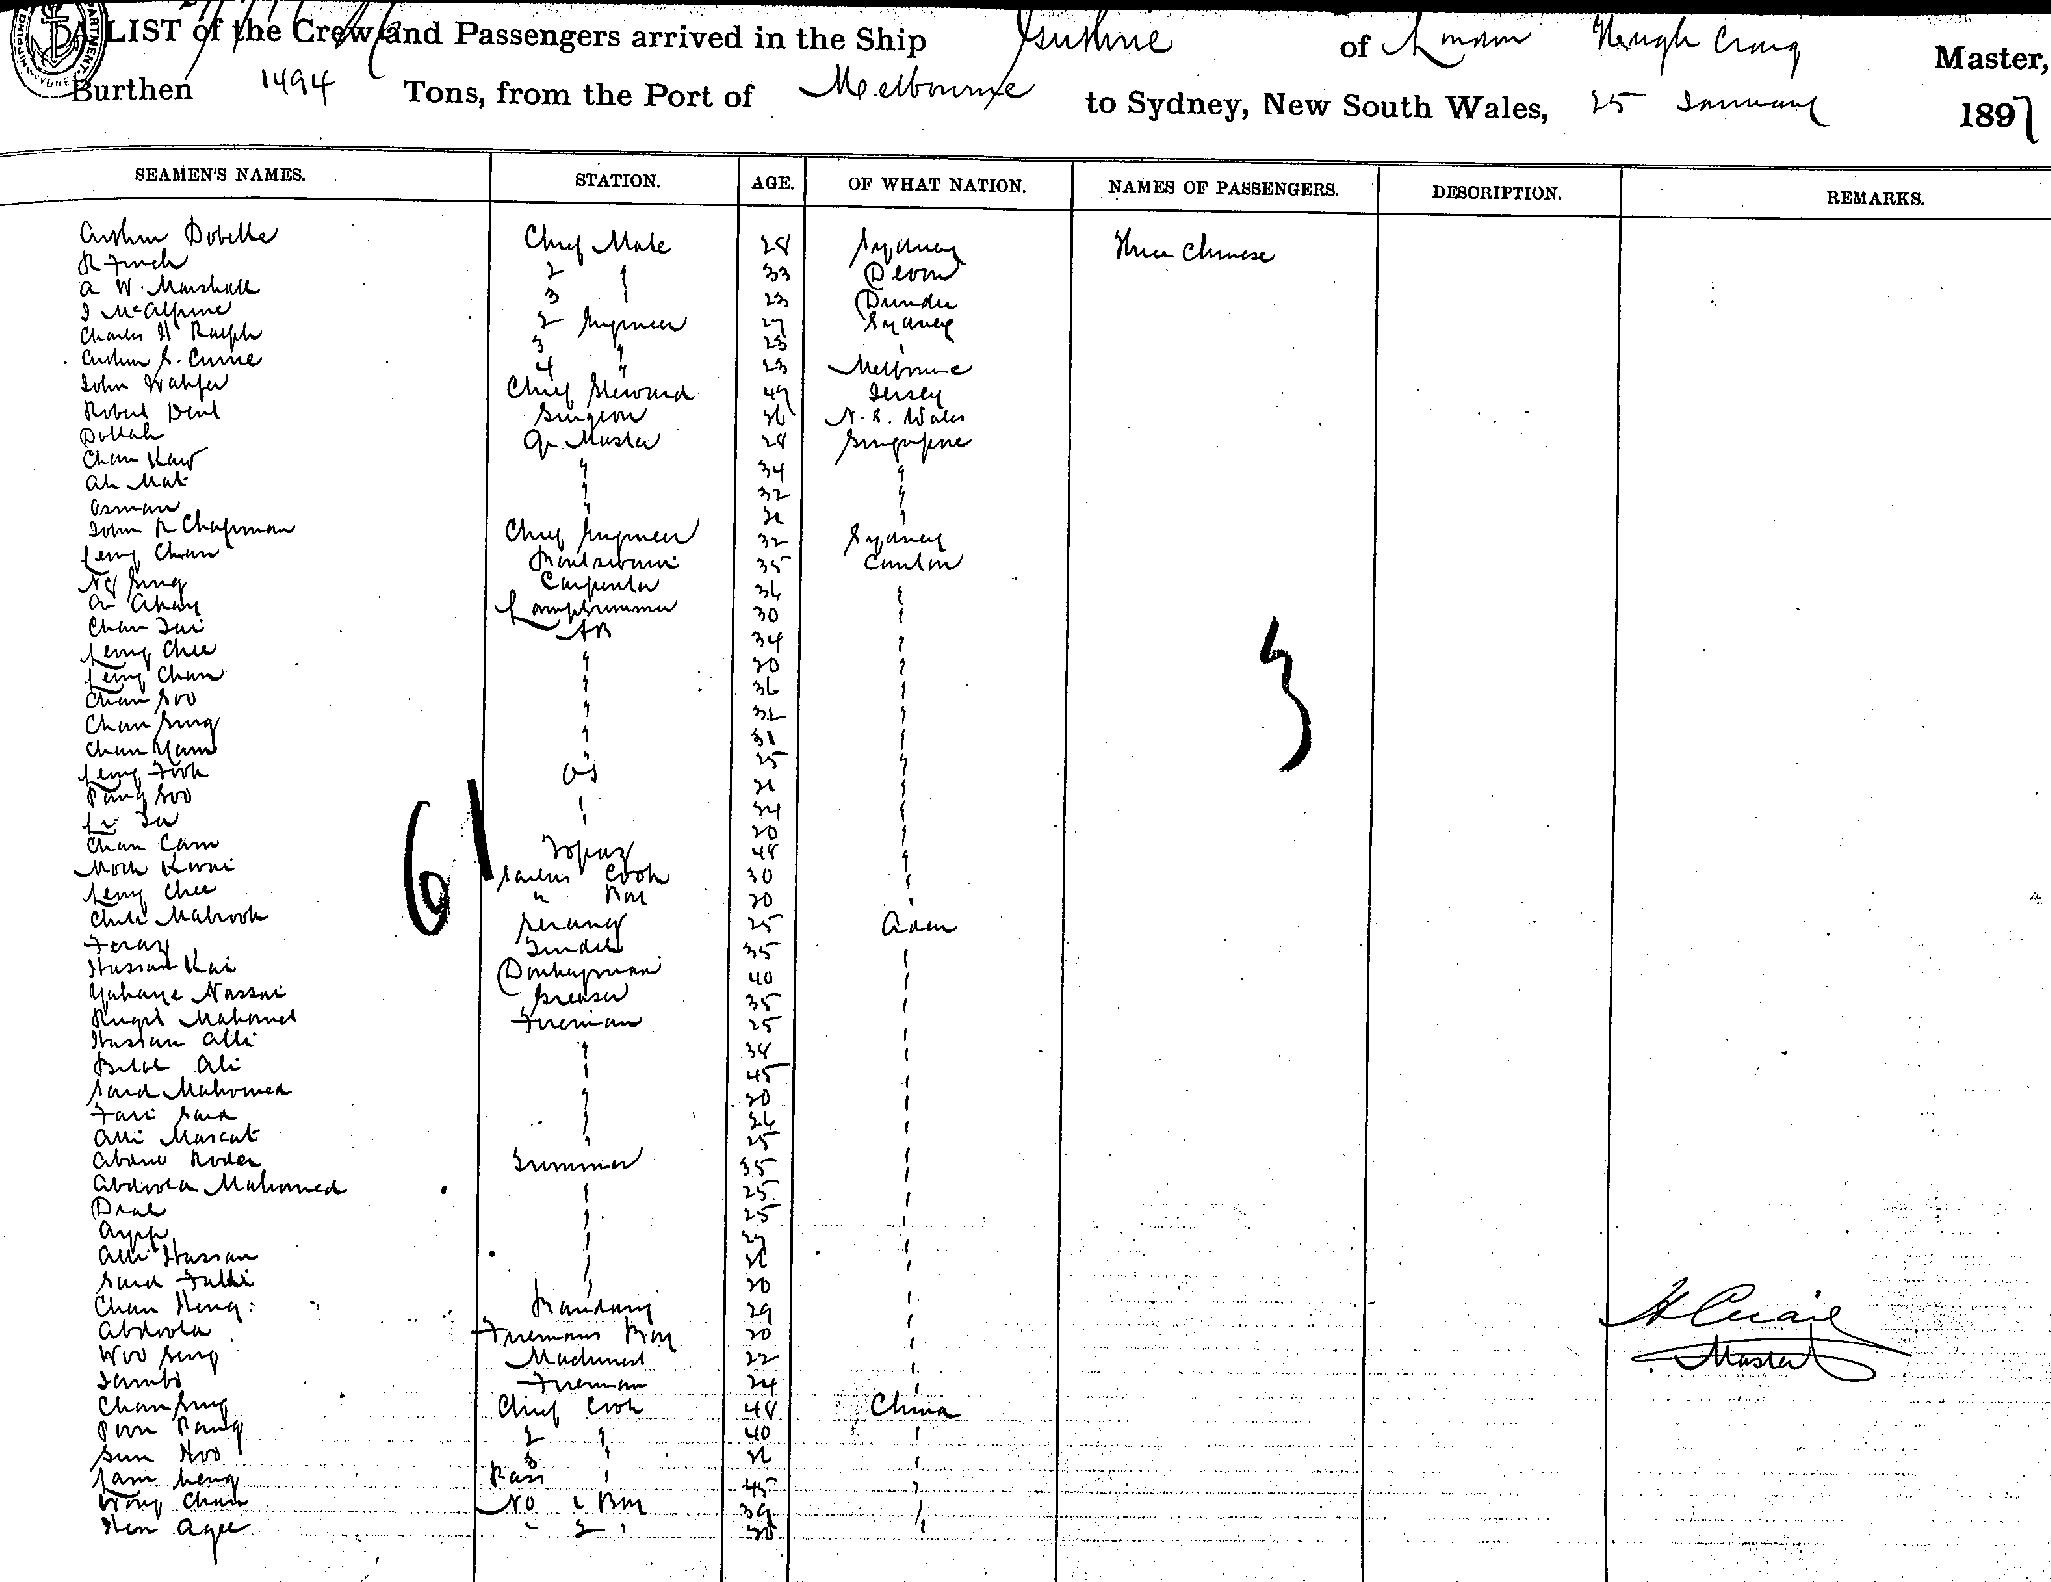 A LIST of the Crew and Passengers arrived in the Ship Guthrie of London Hugh Craig Master,
Burthen 1494 Tons, from the Port of Melbourne to Sydney, New South Wales, 25 January 1897
SEAMEN'S NAMES. STATION. AGE. OF WHAT NATION. NAMES OF PASSENGERS. DESCRIPTION. REMARKS.
Arthur Dobelle Chief Mate 28 Sydney Three Chinese
R Finch 2 " 33 Devon
A W. Marshall 3 " 23 Dundee
J McAlpine 2 Engineer 27 Sydney
Charles H Ralph 3 " 25 "
Arthur S. Currie 4 " 23 Melbourne
John Chief Steward 49 Jersey
Robert Dent Surgeon 36 N. S. Wales
Dollah Qr Master 28 Singapore
Chan Kaw " 34 "
Ah Mat " 32 "
Osman " "
John R Chapman Chief Engineer 32 Sydney
Leong Chean Boatswain 35 Canton
Ng Sing Carpenter 36 "
Lamptrimmer 30 "
Chan Tai AB 34 "
Leong Chee " 30 "
Leong Chan " 36 "
Chan Soo " 32 "
Chan Sing " 31 "
Chan Yam " 25 "
Leong Fook OS "
Pang Soo " 34 "
" 20 "
Chan Cam Topaz 48 "
Mock Kwai Sailors Cook 30 "
Leong Chee " Boy 20 "
Mabrook Serang 25 Aden
Feraz Tindal 35 "
Hassan Kai Donkeyman 40 "
Yahaya Nassai Greaser 35 "
Mahomed Fireman 25 "
Hassan Alli " 38 "
Bilal Ali " 45 "
Said Mahomed " 30 "
Said " 26 "
Alli Muscat " 25 "
Trimmer 35 "
Abdoola Mahomed " 25 "
" 25 "
" 27 "
Alli Hassan " "
Said " 20 "
Chan Heng 29 "
Abdoola Firemans Boy 20 "
Woo Sing Machinist 22 "
Jambo Fireman 24 "
Chan Sing Chief Cook 48 China
Poon Pang 2 " 40 "
Sun Hoo 3 " "
Lam Leong " 45 "
Wong Chan No 1 Boy 39 "
" 2 " 30 "
61
3
H Craig
Master